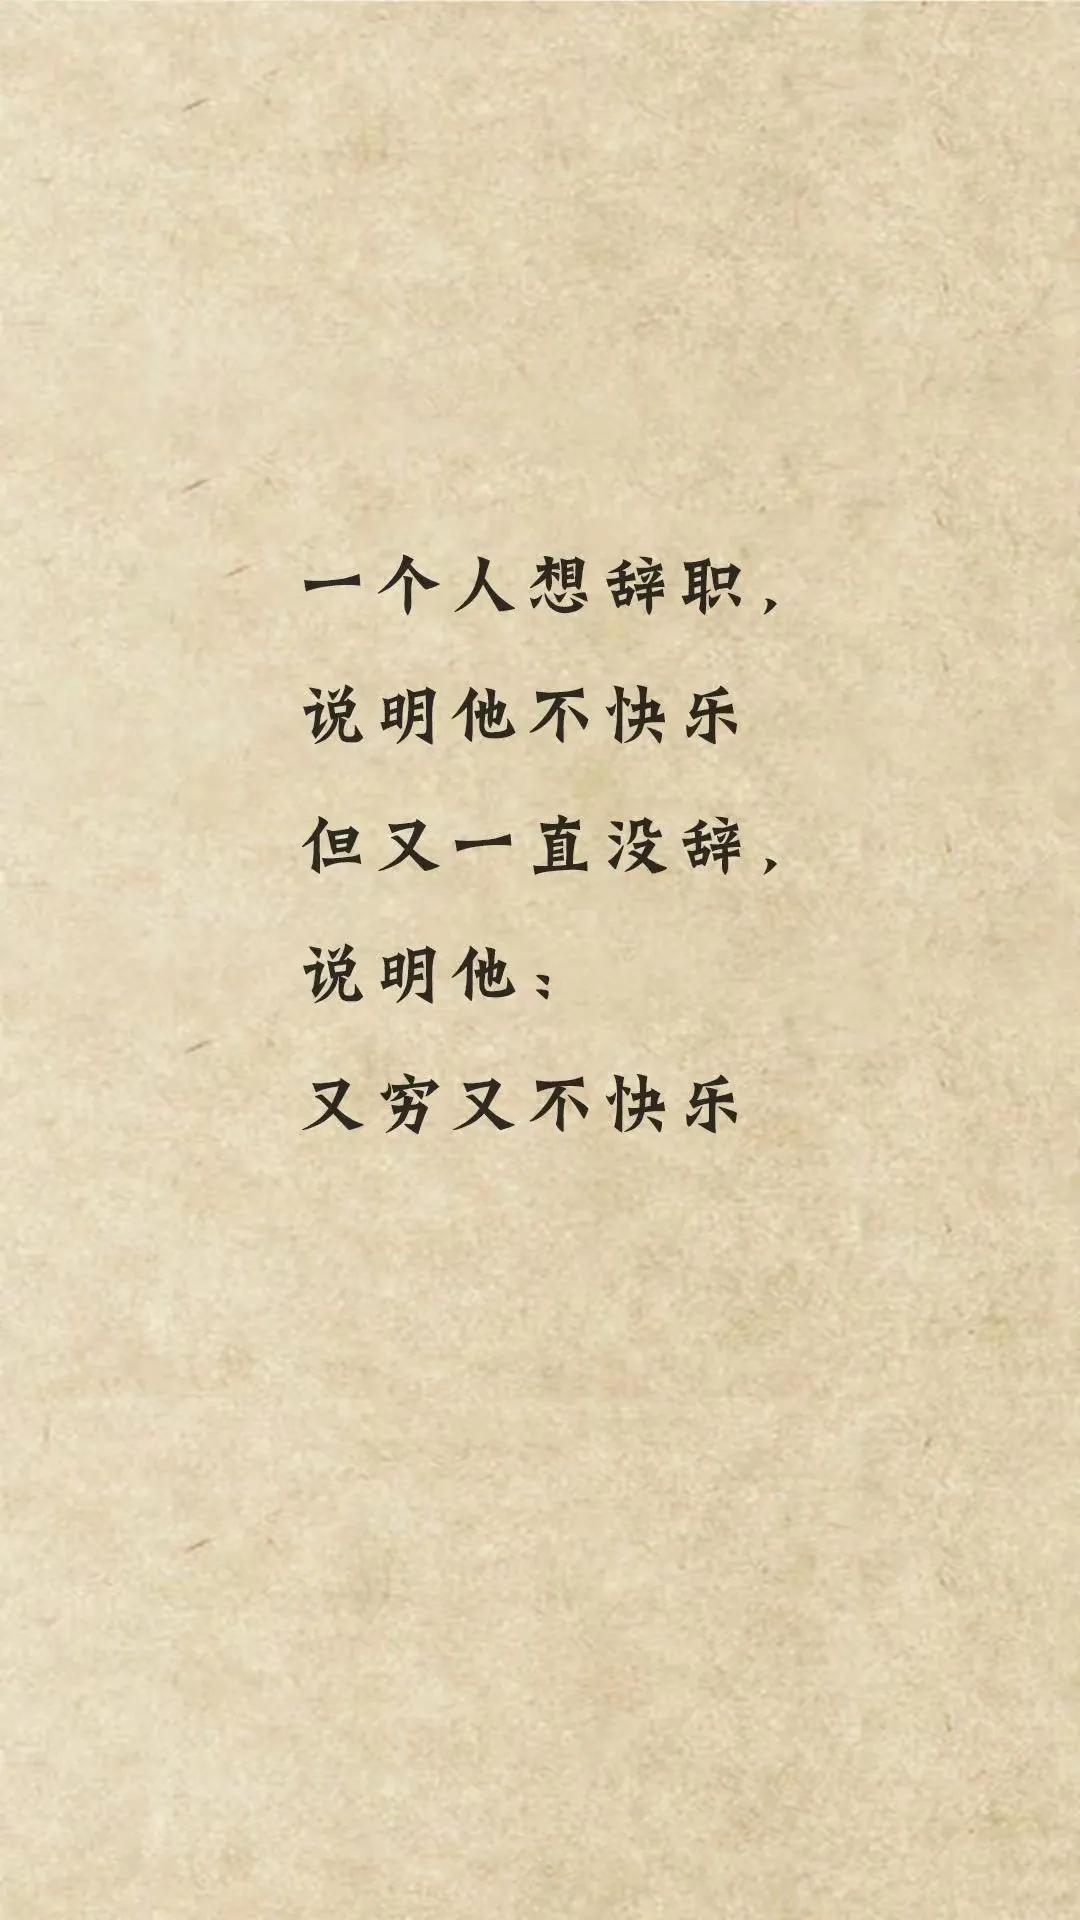 一个人想辞职，
说明他不快乐
但又一直没辞，
说明他：
又穷又不快乐